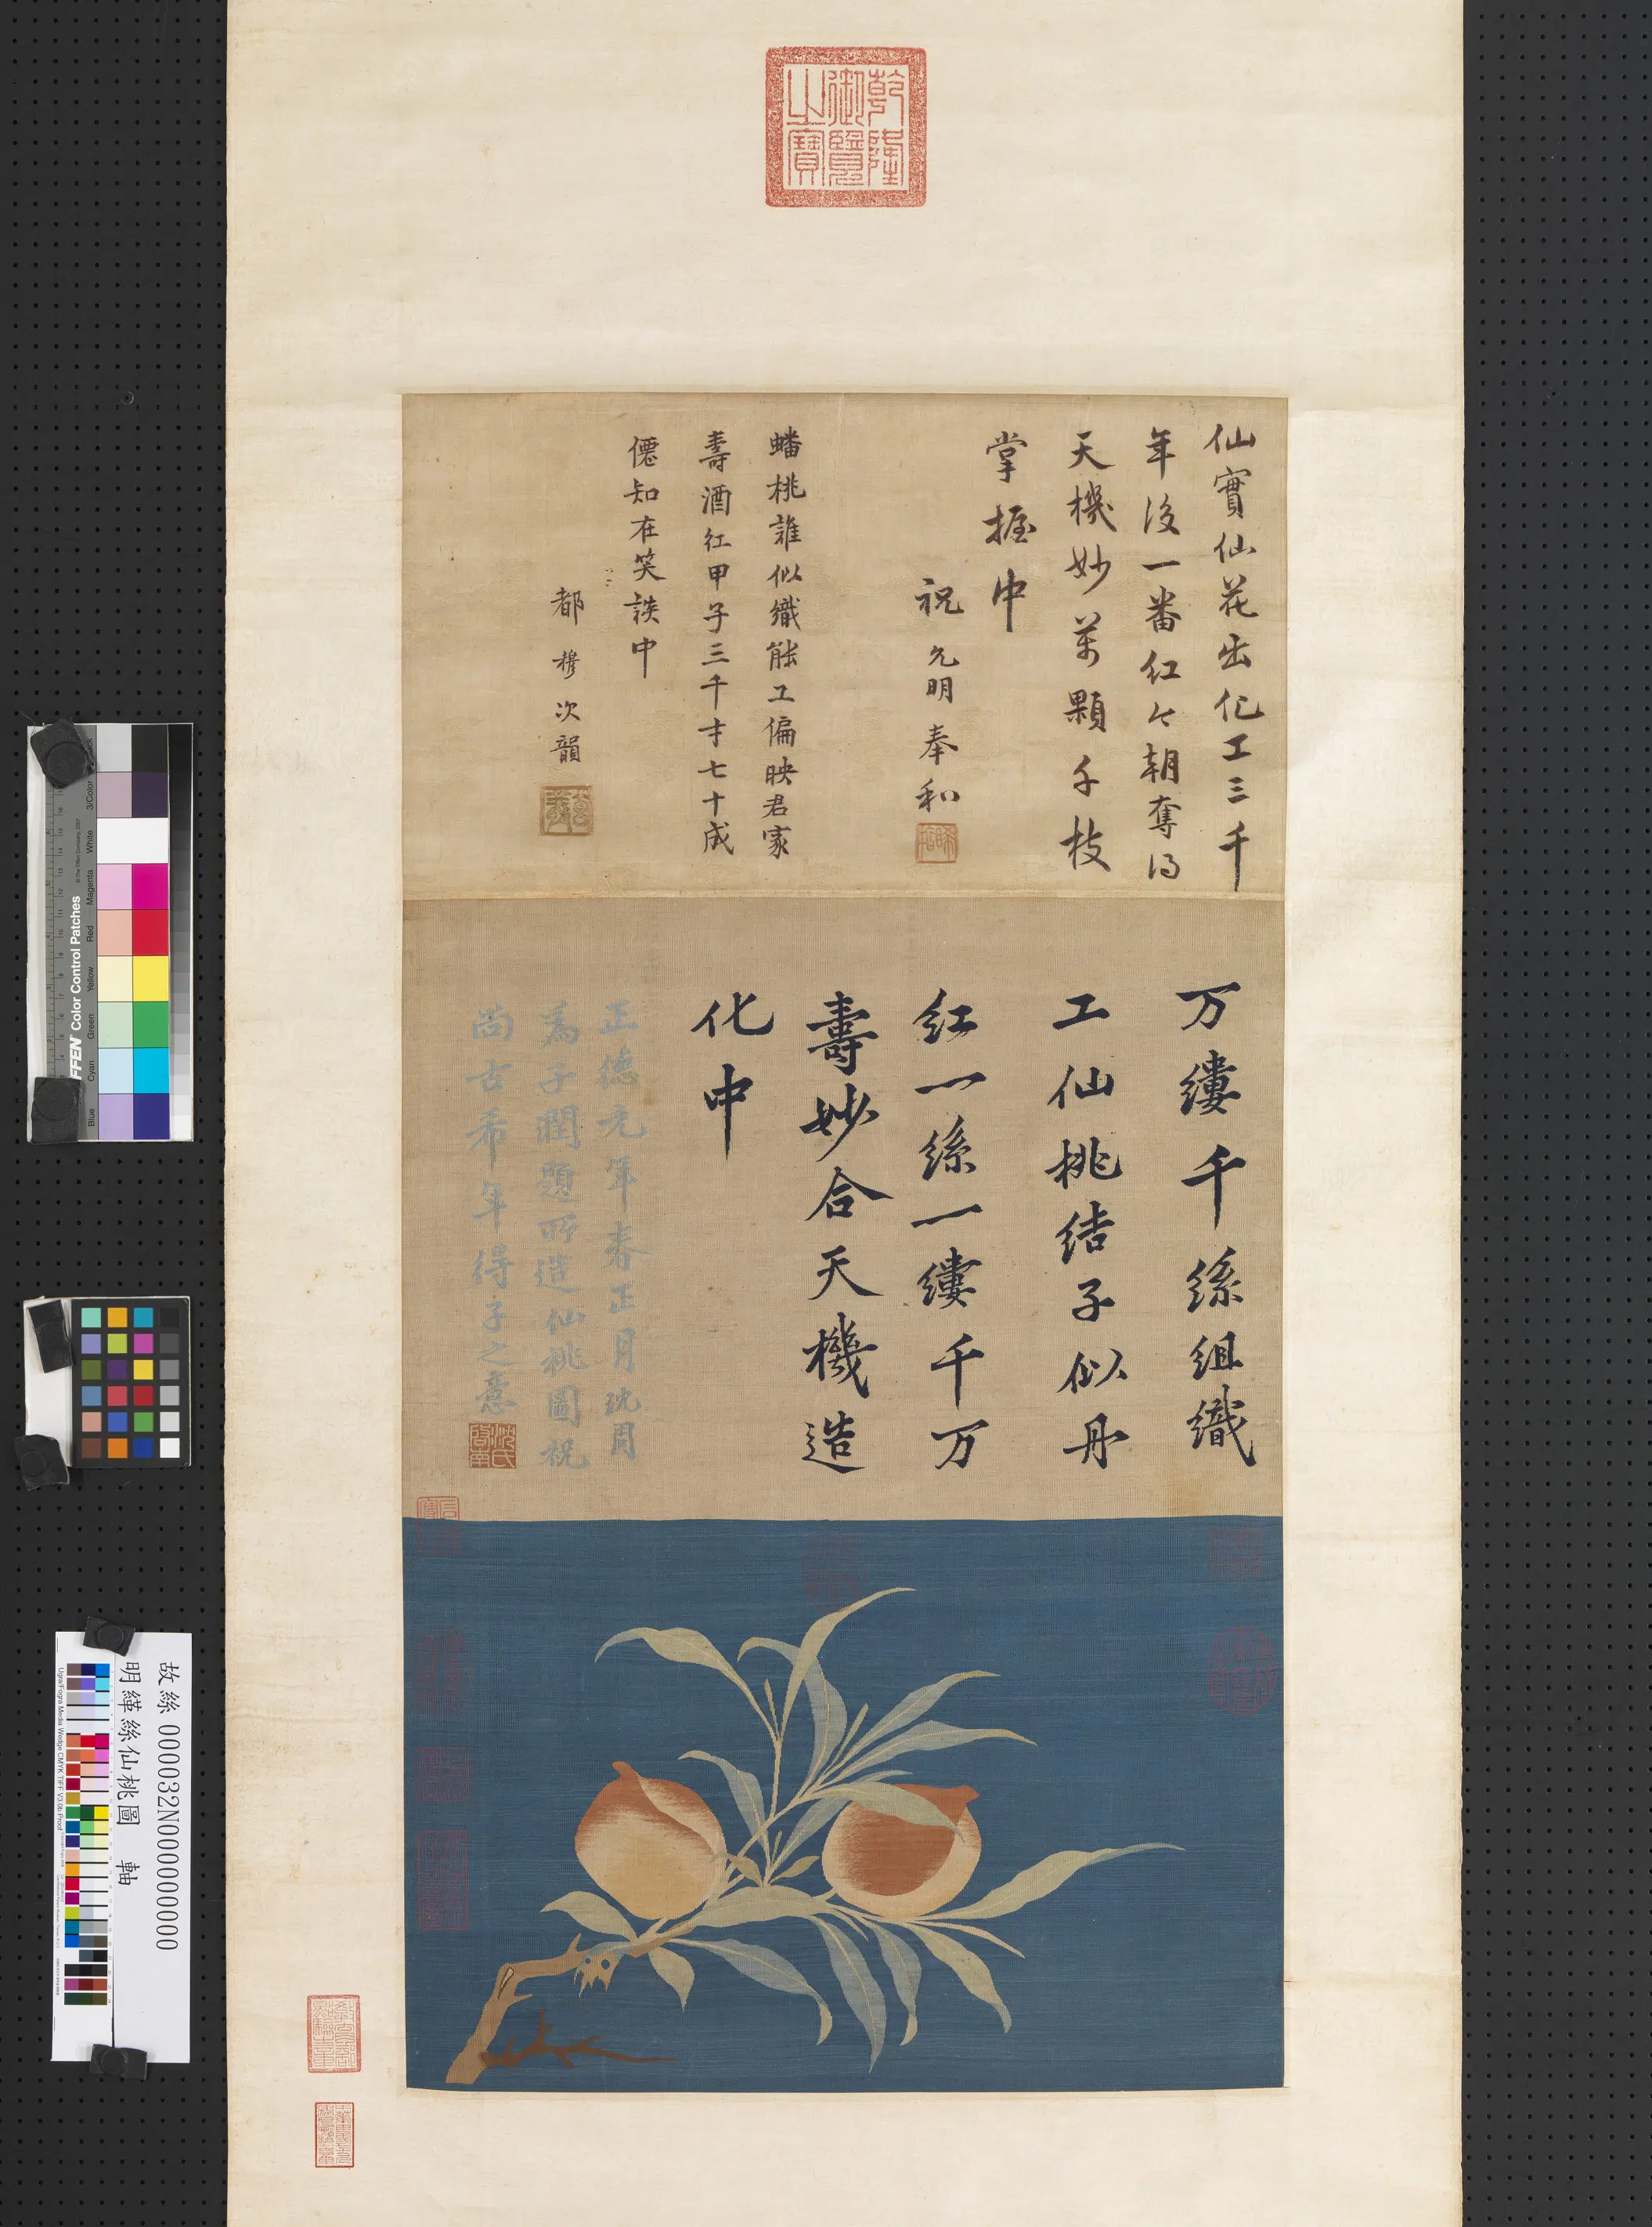 乾隆
御覽
之寶
仙實仙花出化工三千
年後一番紅今朝奪得
天機妙葉顆千枝
掌握中
祝允明奉和
蟠桃誰似織能工偏映君家
壽酒紅甲子三千才七十成
僊知在笑談中
都穆次韻
万縷千絲組織
工仙桃結子似丹
紅一絲一縷千万
壽妙合天機造
化中
正德元年春正月沈周
為子潤題所造仙桃圖祝
尚古希年得子之意
沈氏
啓南
故絲 000032N000000000
明緙絲仙桃圖 軸
FFEN Color Control Patches
© The Tiffen Company, 2007
Blue
Cyan
Green
Yellow
Red
Magenta
White
3/Color
Black
Ugra/Fogra Media Wedge CMYK TIFF V3.0b Proof